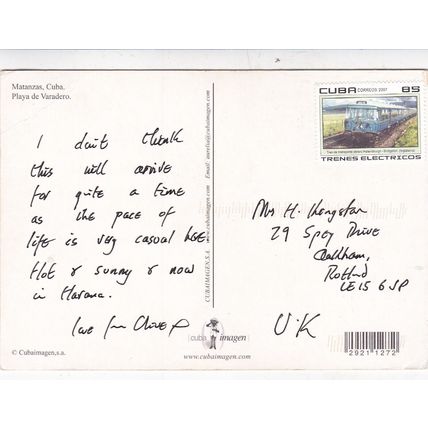 Matanzas, Cuba.
Playa de Varadero.
I don't think
this will arrive
for quite a time
as the pace of
life is very casual here
Hot & sunny & now
in Havana.
love from Clive x
© Cubaimagen,s.a.
CUBAIMAGEN,S.A.
www.cubaimagen.com
Email:
CUBA CORREOS 2007 85
TRENES ELECTRICOS
Mrs H. Kengston
29 Spey Drive
Oakham,
Rutland
LE15 6SP
UK
cuba imagen
www.cubaimagen.com
2921 1272